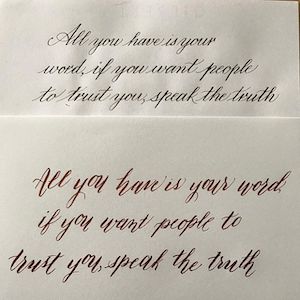 All you have is your
word, if you want people
to trust you, speak the truth
All you have is your word
if you want people to
trust you, speak the truth